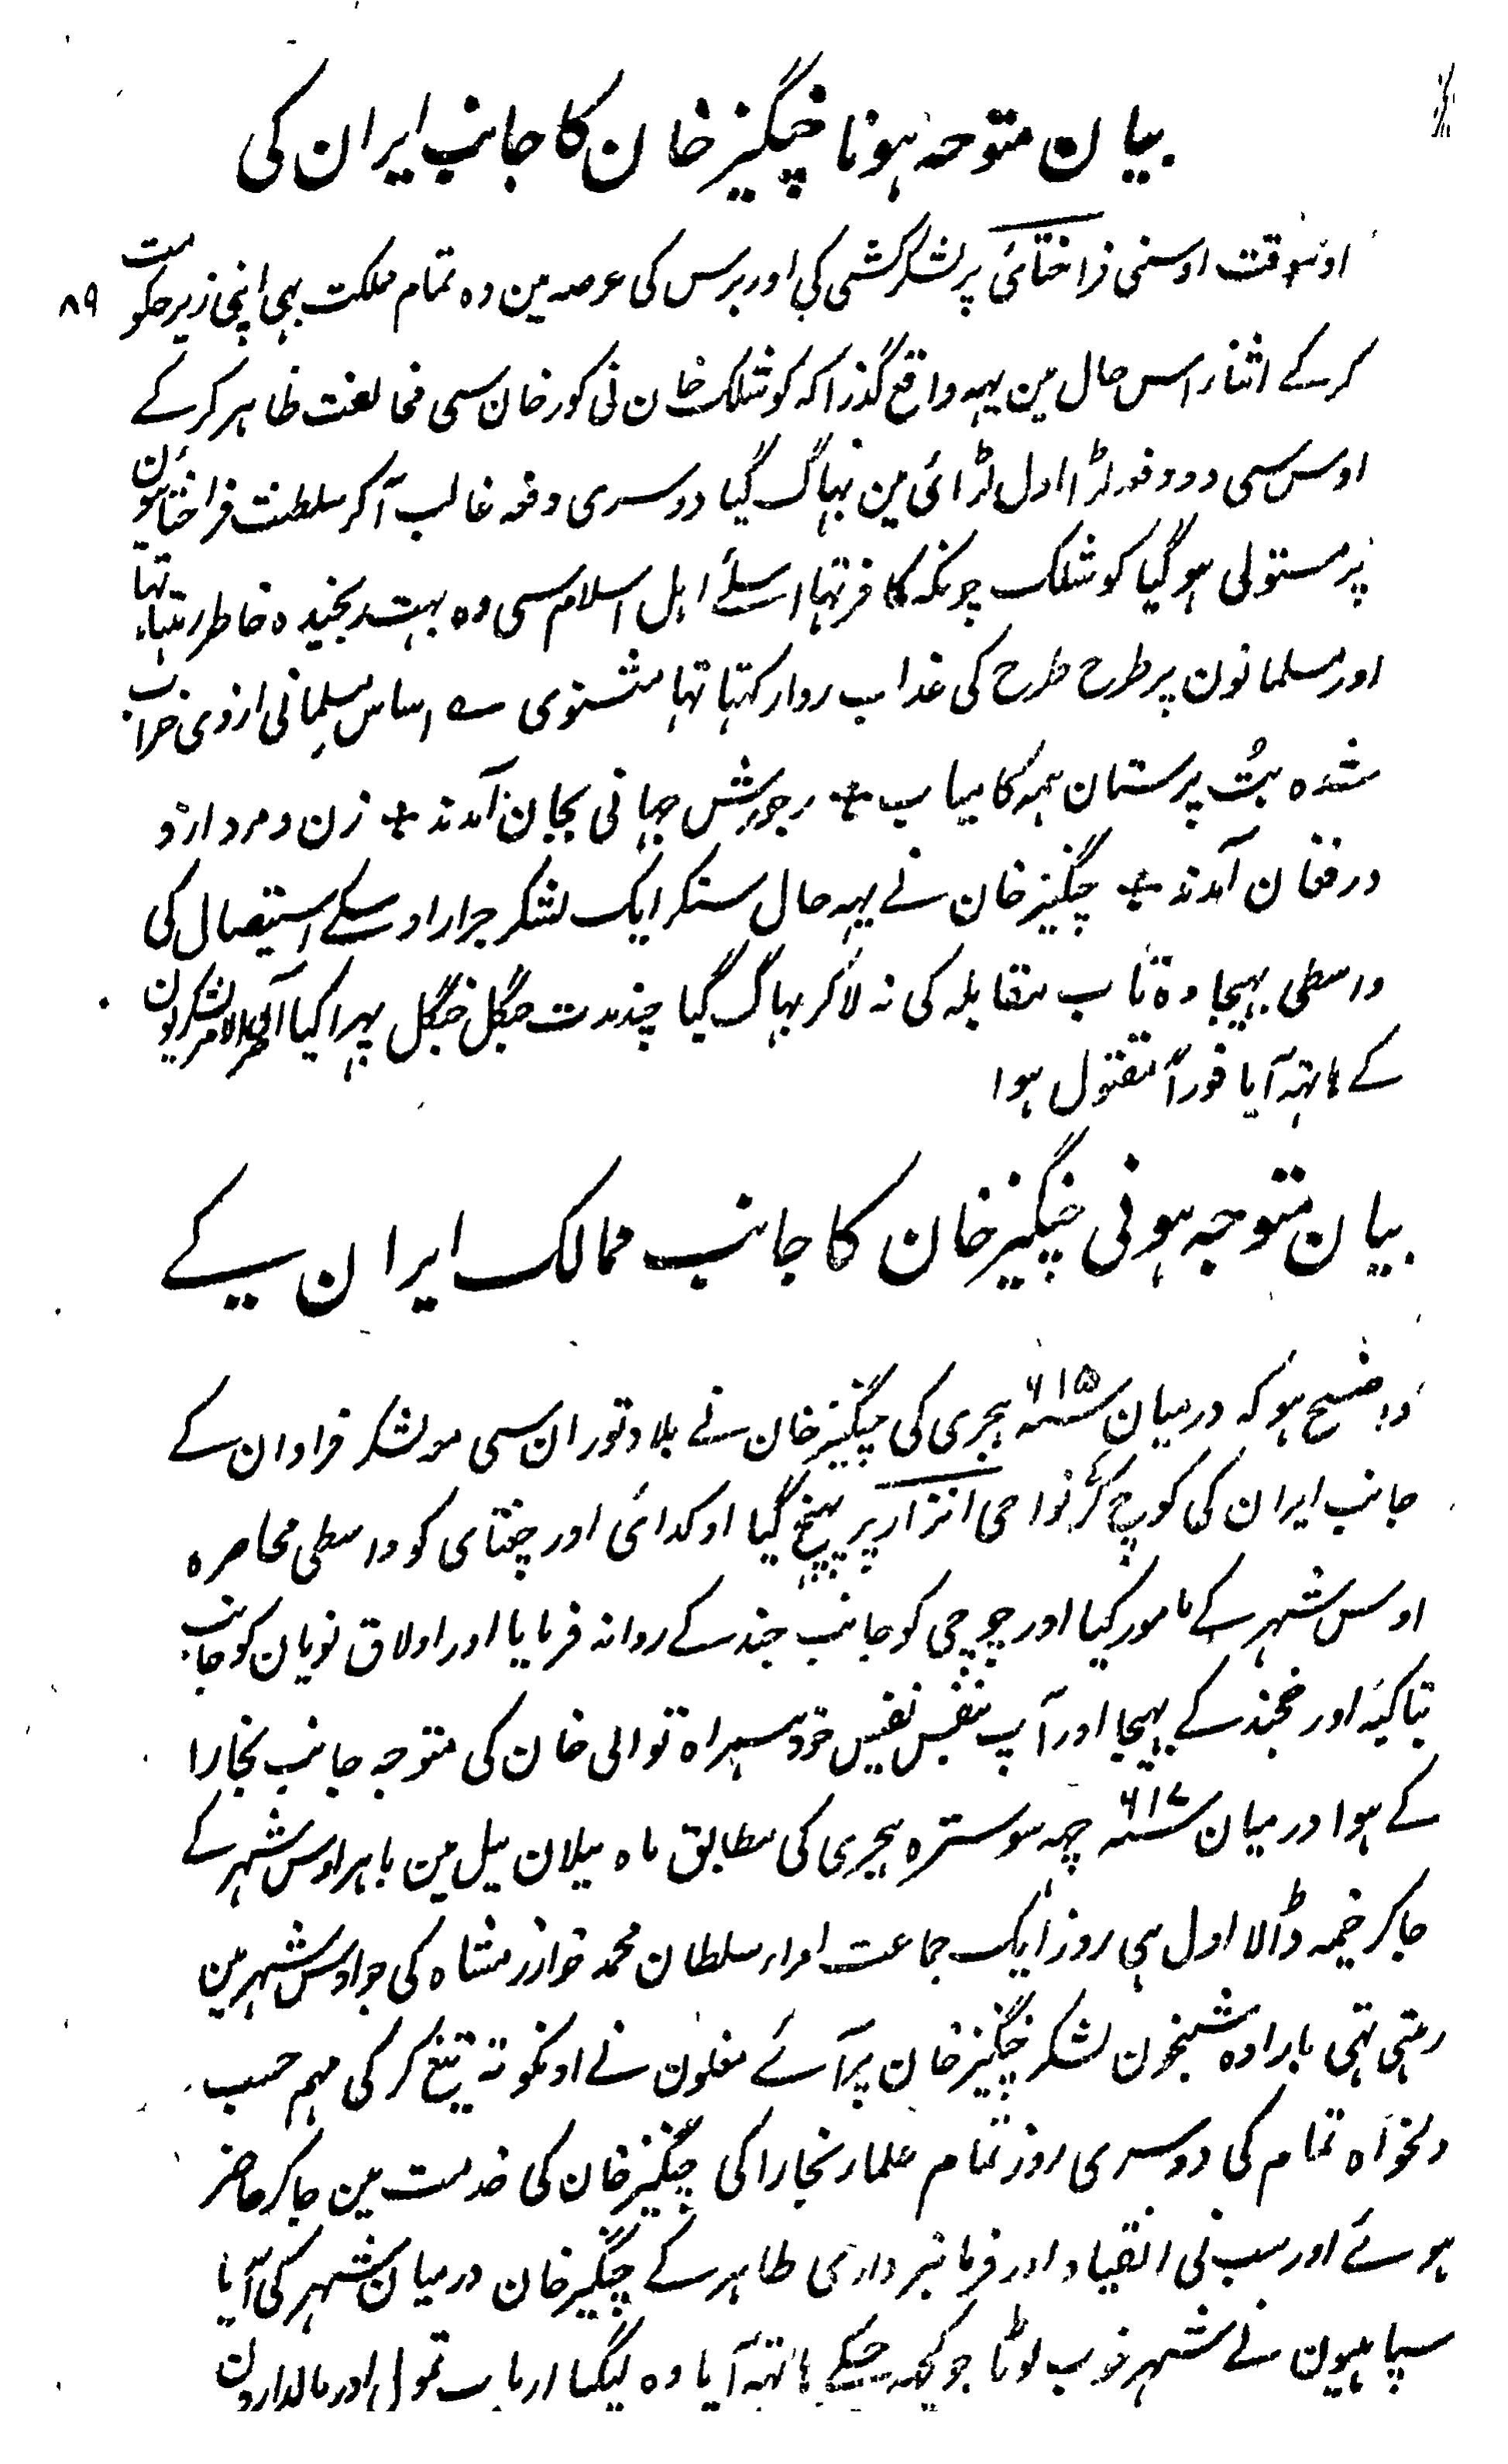 بیان متوجہ ہونا چنگیز خان کا جانب ایران کی
اوسوقت اوسنی قراختائی پر لشکر کشی کی اور برس کی عرصہ مین وہ تمام مملکت بہی اپنی زیر حکومت
۸۹
کر کے اثناء اس حال مین یہہ واقع گذرا کہ کوشلک خان نی کور خان سی مخالفت ظاہر کر کے
اوس سی دو دفعہ لڑا اول لڑائی مین بہاگ گیا دوسری دفعہ غالب آ کر سلطنت قراختائیون
پر مستولی ہو گیا کوشلک چونکہ کافر تہا اسلئے اہل اسلام سی وہ بہت رنجیدہ خاطر رہتا تہا
اور مسلمانون پر طرح طرح کی عذاب روا رکہتا تہا مثنوی ے اساس مسلمانی ازوی خراب
شدہ بُت پرستان ہمہ کامیاب ٭ رجورش جہانی بجان آمدند ٭ زن و مرد ازو
در فغان آمدند ٭ چنگیز خان نے یہہ حال سنکر ایک لشکر جرار اوسکے استیصال کی
واسطی بہیجا وہ تاب مقابلہ کی نہ لا کر بہاگ گیا چند مدت جنگل جنگل پہرا کیا آخر الامر لشکریون
کے ہاتہہ آیا فوراً مقتول ہوا
بیان متوجہ ہونی چنگیز خان کا جانب ممالک ایران کے
واضح ہو کہ درمیان سنہ ۶۱۵ ہجری کی چنگیز خان نے بلاد توران سی مع لشکر فراوان کے
جانب ایران کی کوچ کر کے نواحی انزار پر پہنچ گیا اوکدائی اور چغتای کو واسطی محاصرہ
اوس شہر کے مامور کیا اور جوجی کو جانب جند کے روانہ فرمایا اور اولاق نویان کو جانب
تباکیہ اور خجند کے بہیجا اور آپ بنفس نفیس خود ہمراہ توالی خان کی متوجہ جانب بخارا
کے ہوا درمیان سنہ ۶۱۷ چہہ سو سترہ ہجری کی مطابق ماہ ییلان ییل مین باہر اوس شہر کے
جا کر خیمہ ڈالا اول ہی روز ایک جماعت امراء سلطان محمد خوارزمشاہ کی جو اوس شہر مین
رہتی تہی بارادہ شبخون لشکر چنگیز خان پر آئے مغلون نے اونکو تہ تیغ کر کی مہم حسب
دلخواہ تمام کی دوسری روز تمام علماء بخارا کی چنگیز خان کی خدمت مین جا کر حاضر
ہوئے اور سب نی انقیاد اور فرمانبرداری ظاہر کے چنگیز خان درمیان شہر کی آیا
سپاہیون نے شہر خوب لوٹا جو کچہہ جسکے ہاتہہ آیا وہ لیگیا ارباب تمول اور مالدارون